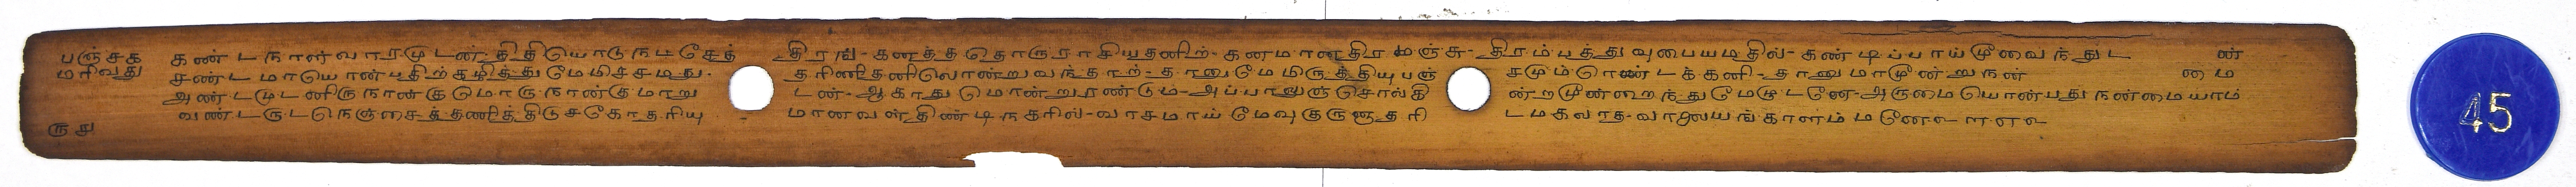 பஞ்சக கண்டநாள்வாரமுடன்-திதியொடுநடசேத் திரங்-கணத்ததொருராசியதனிற்-கனமானதிரமஞ்சு-திரம்பத்துவுபையமதில்-கண்டிப்பாய்மூவைந்துட ன்
மரிவது சண்டமாயொன்பதிற்கழித்துமேமிச்சமது- தரிணிதனிலொண்றுவந்தாற்-தானுமேமிருத்தியுபஞ் சமும்ரெண்டக்கனி-தானுமாமூன்றுநன் மை
அண்டமுடனிருநான்குமொருநான்குமாறு டன்-ஆகாதுமொன்றுரண்டும்-அப்பாலுஞ்சொல்கி ன்றமூண்றைந்துமேழுடனே-அருமையொண்பதுநன்மையாம்
வண்டருடநெஞ்சைத்தணித்திடுசகோதரியு மானவள்திண்டிநகரில்-வாசமாய்மேவுகுருளுதரி டமகலாத-வாலையங்காளம்மனே
ருது
45